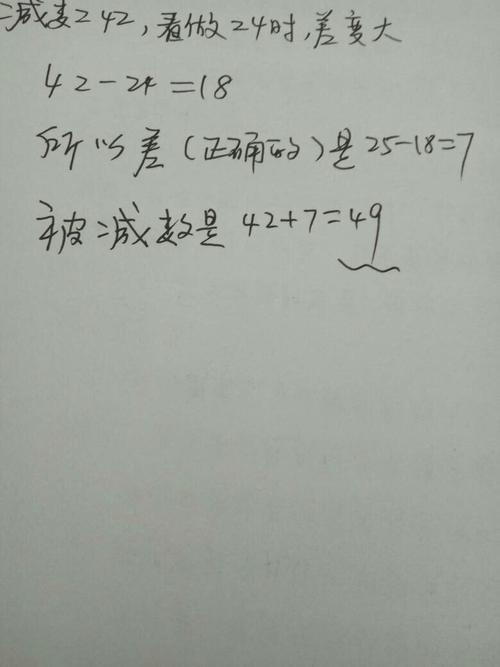 减数42，看做24时，差变大
42-24=18
所以差（正确的）是25-18=7
被减数是42+7=49